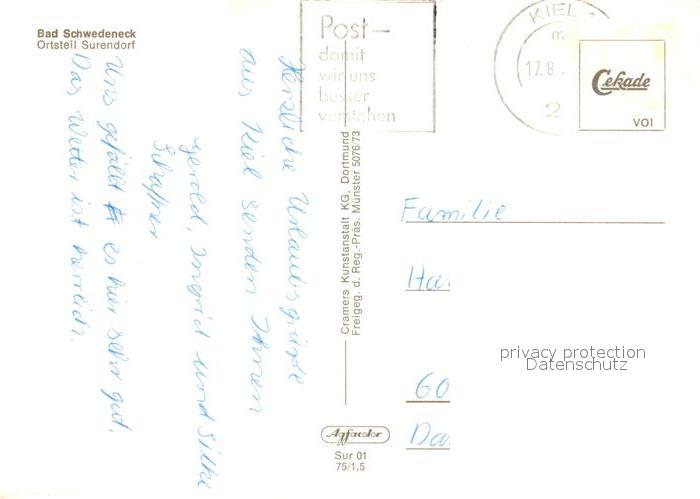 Bad Schwedeneck
Ortsteil Surendorf
Post—
damit
wir uns
besser
verstehen
KIEL
17.8.
2
Cekade
VOI
Herzliche Urlaubsgrüße
aus Kiel senden Ihnen
Gerold, Ingrid und Silke
Uns gefällt es hier sehr gut.
Das Wetter ist herrlich.
Cramers Kunstanstalt KG, Dortmund
Freigeg. d. Reg.-Präs. Münster 5076/73
Familie
Ha
60
Da
privacy protection
Datenschutz
Agfacolor
Sur 01
75/1,5